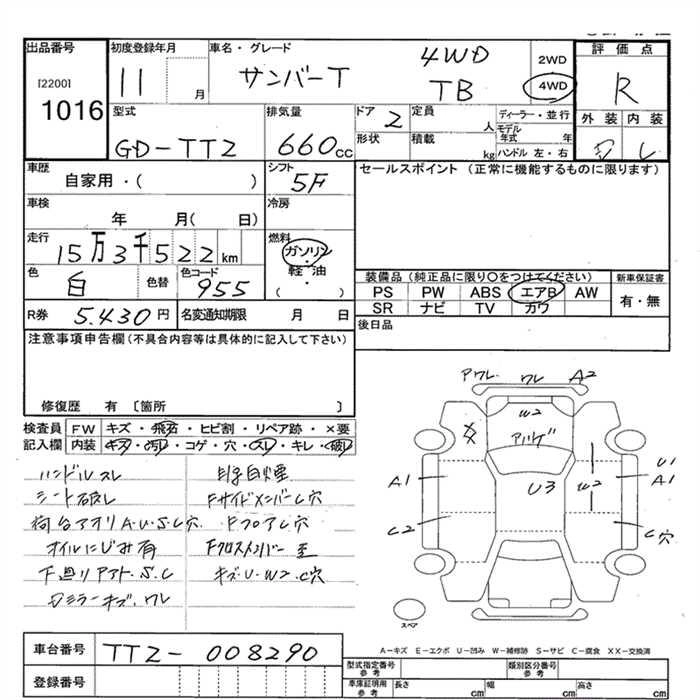 出品番号
[2200]
1016
初度登録年月
11
月
車名・グレード
サンバーT
4WD
TB
2WD
4WD
評価点
R
外装 内装
型式
GD-TT2
排気量
660cc
ドア 2
形状
定員
人
積載
kg
ディーラー・並行
モデル年式
年
ハンドル 左・右
車歴
自家用・( )
シフト
5F
セールスポイント (正常に機能するものに限ります)
車検
年 月( 日)
冷房
走行
15万3千522km
燃料
ガソリン
軽・油
( )
色
白
色替
色コード
955
装備品 (純正品に限り○をつけてください)
PS PW ABS エアB AW
SR ナビ TV カワ
新車保証書
有・無
R券
5.430円
名変通知期限
月 日
後日品
注意事項申告欄(不具合内容等は具体的に記入して下さい)
修復歴 有 〔箇所 〕
検査員記入欄
FW キズ・飛石・ヒビ割・リペア跡・×要
内装 キズ・汚れ・コゲ・穴・スレ・キレ・破レ
ハンドルスレ
シート破レ
荷台アオリA.U.S.C穴
オイルにじみ有
下廻りアト.S.C
ミラーキズ.ワレ
白煙
FサイドメンバーC穴
FフロアC穴
Fクロスメンバー
キズ.U.W2.C穴
ワレ
A2
W2
XX
U3
A1
C2
W2
U1
A1
C穴
スペア
A-キズ E-エクボ U-凹み W-補修跡 S-サビ C-腐食 XX-交換済
車台番号
TT2-008290
登録番号
型式指定番号
参考
類別区分番号
参考
車庫証明用
参考
長さ
cm
幅
cm
高さ
cm